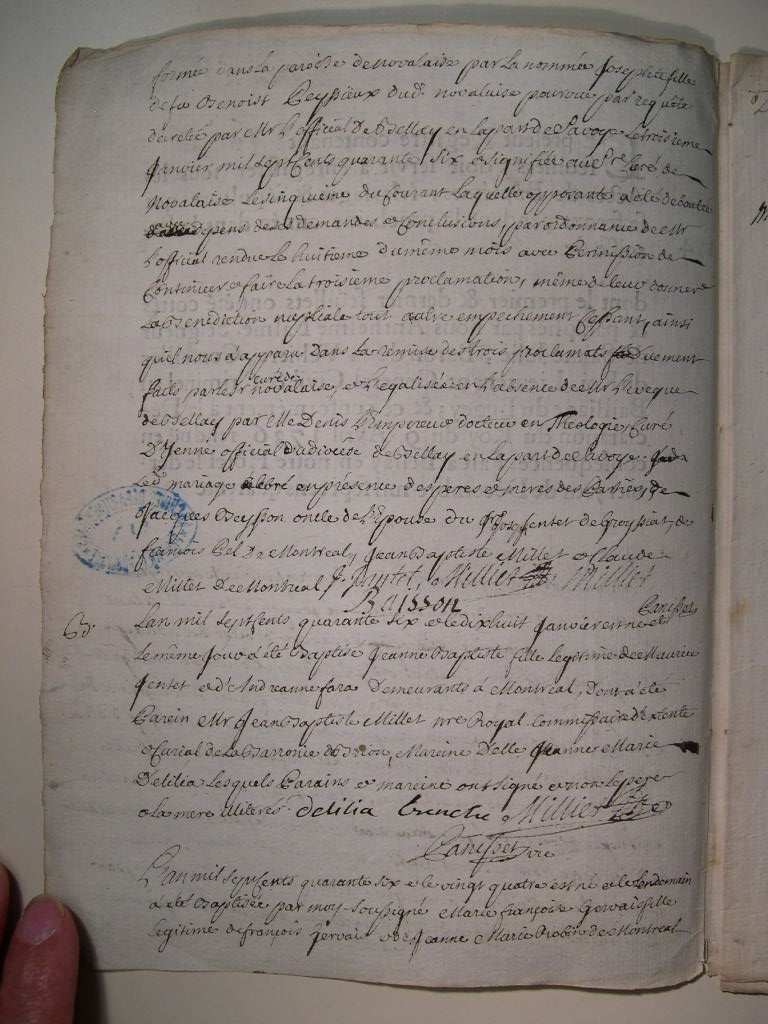 formée dans la paroisse de Novalaise par la nommée Josephte fille
de fu Benoist Peyssieux dud. novalaise pourvue par requête
decretée par Mr l'official de Bellay en la part de Savoye le troisieme
Janvier mil sept cents quarante six et signifiée au Sr. Curé de
Novalaise le cinquieme du Courant laquelle opposante a été deboutée
depens de ses demandes et Conclusions, par ordonnance de Mr
l'official rendue le huitieme du même mois avec Permission de
Continuer et faire la troisieme proclamation, même de leur donner
la Benediction nuptiale tout autre empechement Cessant, ainsi
quil nous a apparu dans la remise des trois proclamats duement
faits par le Sr curé de novalaise, et Legalisée en l'absence de Mr l'eveque
de Bellay par Me Denis L'Empereur docteur en Theologie Curé
D'Yenne official du diocèse de Bellay en la part de Savoye.
Led. mariage celebré en présence des peres et mères des Parties, de
Jacques Beysson oncle de l'Epouse du Sr Jentet de Groyssiat, de
françois Bel De Montreal, Jean Baptiste Millet et Claude
Millet De Montreal J. Jentet, Millier Millier
Baisson Canisset
63. Lan mil sept Cents quarante six et le dix huit Janvier est né et
le même Jour a été Baptisé Jeanne Baptiste fille legitime de Maurice
Jentet et d'Andreanne fara Demeurants à Montreal, Dont a été
Parein Mr Jean Baptiste Millet nre Royal Commissaire d'extente
et Curial de la Barronie de Brion, Mareine Delle Jeanne Marie
Delilia Lesquels Parains et mareine ont signé et non le pere
et la mere illiteres. Delilia trenche Millier
Canisset vic
L'an mil sept cents quarante six et le vingt quatre est né et le Lendemain
a eté Baptisée par moy soussigné Marie françoise Gervais fille
legitime de françois Gervais et de Jeanne Marie Robin de Montreal